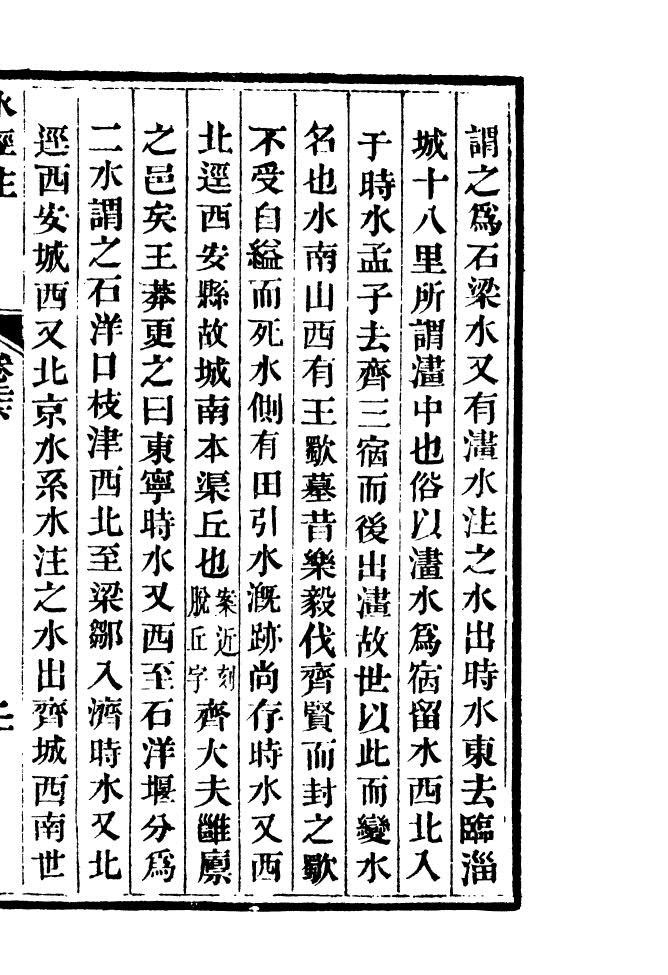 謂之爲石梁水又有澅水注之水出時水東去臨淄
城十八里所謂澅中也俗以澅水爲宿留水西北入
于時水孟子去齊三宿而後出澅故世以此而變水
名也水南山西有王歜墓昔樂毅伐齊賢而封之歜
不受自縊而死水側有田引水溉跡尚存時水又西
北逕西安縣故城南本渠丘也案近刻脫丘字齊大夫雝廪
之邑矣王莽更之曰東寧時水又西至石洋堰分爲
二水謂之石洋口枝津西北至梁鄒入濟時水又北
逕西安城西又北京水系水注之水出齊城西南世
水經注 卷二十六